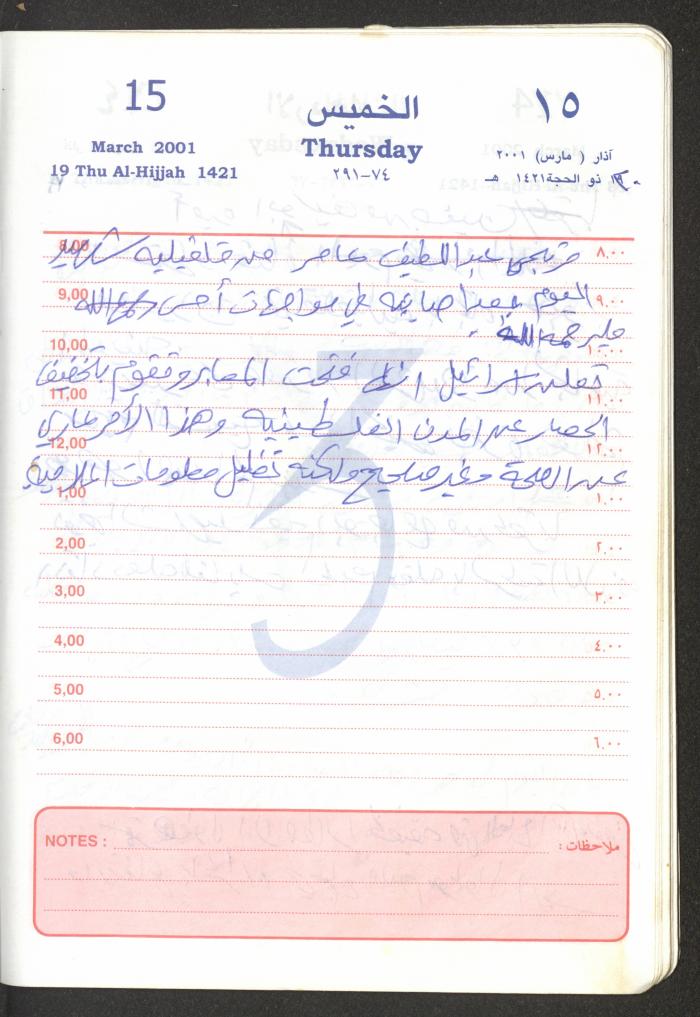 15 الخميس ١٥
March 2001 Thursday آذار ( مارس ) ٢٠٠١
19 Thu Al-Hijjah 1421 ٧٤-٢٩١ ذو الحجة ١٤٢١ هـ
8,00 ٨,٠٠
عبد اللطيف عامر من قلقيلية شهيد
9,00 ٩,٠٠
اليوم بعد اصابته في مواجهات أمس
10,00 ١٠,٠٠
تعلن اسرائيل انها فتحت المعابر وتقوم بتخفيف
11,00 ١١,٠٠
الحصار عن المدن الفلسطينية وهذا الأمر عاري
12,00 ١٢,٠٠
عن الصحة وغير صحيح ولكنه تظليل
1,00 ١,٠٠
2,00 ٢,٠٠
3,00 ٣,٠٠
4,00 ٤,٠٠
5,00 ٥,٠٠
6,00 ٦,٠٠
NOTES : ملاحظات :
3